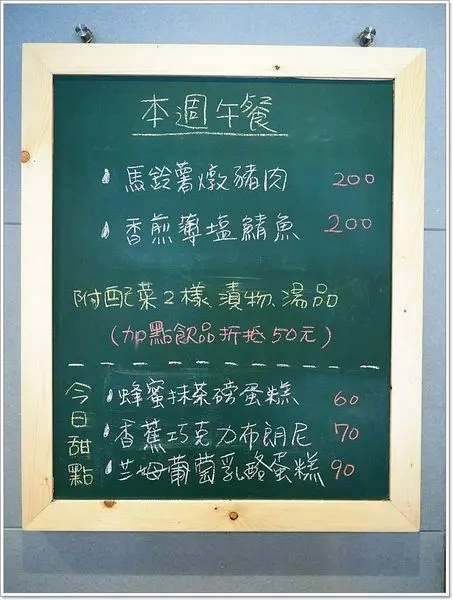 本週午餐
馬鈴薯燉豬肉 200
香煎薄塩鯖魚 200
附配菜2樣、漬物、湯品
(加點飲品折抵50元)
今日甜點
蜂蜜抹茶磅蛋糕 60
香蕉巧克力布朗尼 70
兰姆葡萄乳酪蛋糕 90